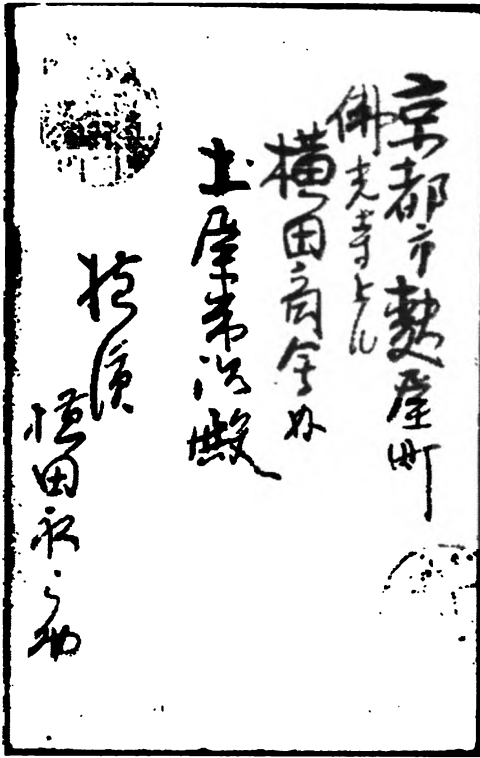 京都市麩屋町
佛光寺上ル
横田商会内
土屋常治殿
横濱
横田永之助